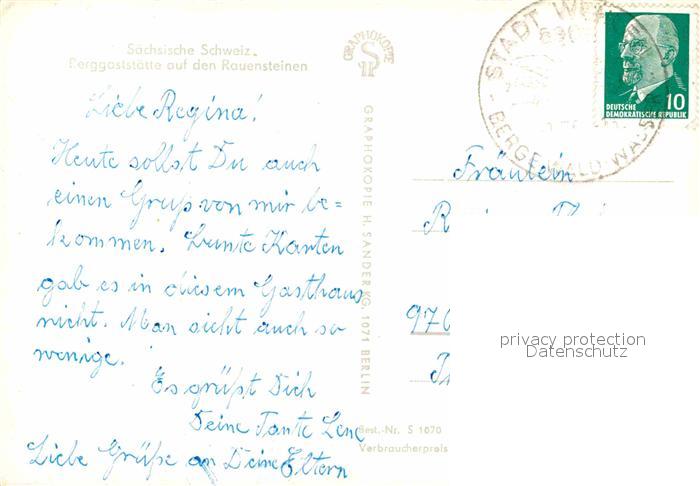 Sächsische Schweiz.
Berggaststätte auf den Rauensteinen
GRAPHOKOPIE
Liebe Regina!
Heute sollst Du auch
einen Gruß von mir be=
kommen. Bunte Karten
gab es in diesem Gasthaus
nicht. Man sieht auch so
wenige.
Es grüßt Dich
Deine Tante Lene
Liebe Grüße an Deine Eltern
GRAPHOKOPIE H. SANDER KG, 1071 BERLIN
Best.-Nr. S 1670
Verbraucherpreis
STADT
BERGE · WALD · WASSER
DEUTSCHE
DEMOKRATISCHE REPUBLIK
10
Fräulein
R
976
privacy protection
Datenschutz